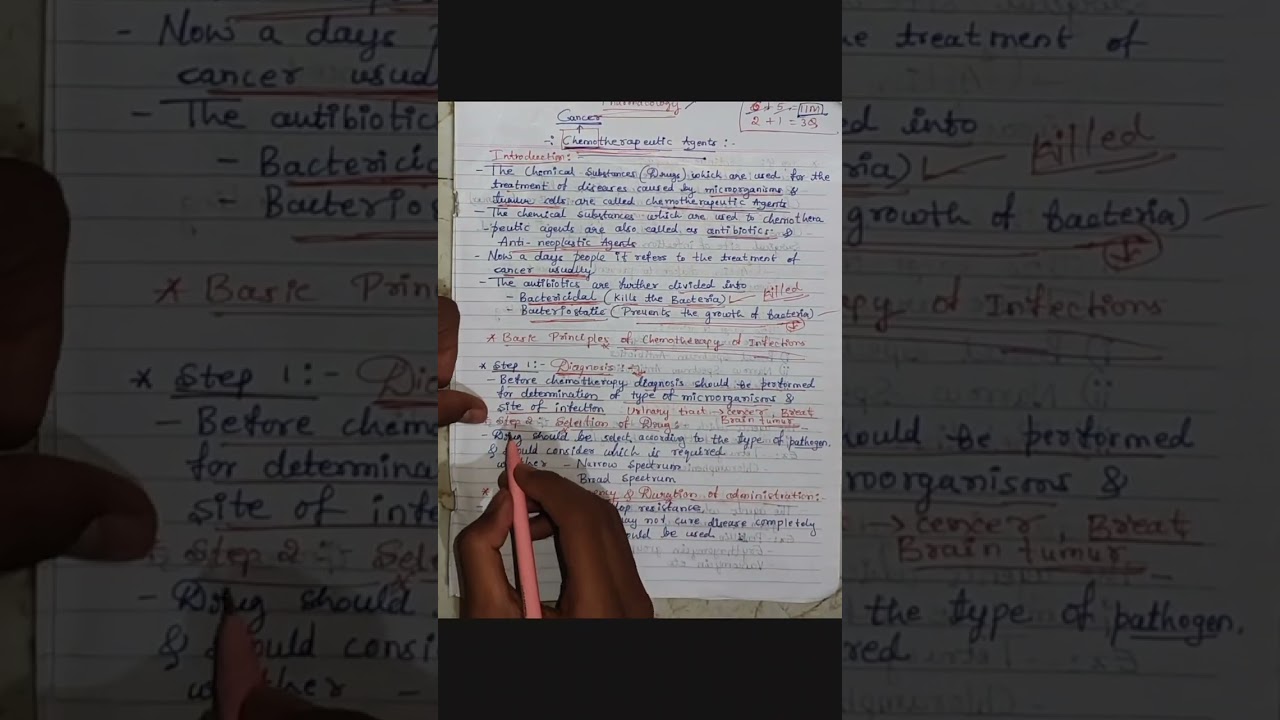 Pharmacology
6 + 5 = 11M
2 + 1 = 3Q
Cancer
-: Chemotherapeutic Agents :-
Introduction:
- The Chemical Substances (Drugs) which are used for the
treatment of diseases caused by microorganisms &
tumur cells are called chemotherapeutic Agents
- The chemical substances which are used to chemothera
-peutic agents are also called as antibiotics &
Anti-neoplastic Agents
- Now a days people it refers to the treatment of
cancer usually
- The antibiotics are further divided into
- Bactericidal (Kills the Bacteria) killed
- Bacteriostatic (Prevents the growth of bacteria)
* Basic Principles of Chemotherapy of Infections
* Step 1:- Diagnosis:-
- Before chemotherapy diagnosis should be performed
for determination of type of microorganisms &
site of infection Urinary tract → cencer, Breat
Brain tumur
Step 2:- Selection of Drug:
- Drug should be select according to the type of pathogen.
& should consider which is required
- Narrow Spectrum
Broad Spectrum
* & Duration of administration:-
resistance,
may not cure disease completely
should be used.